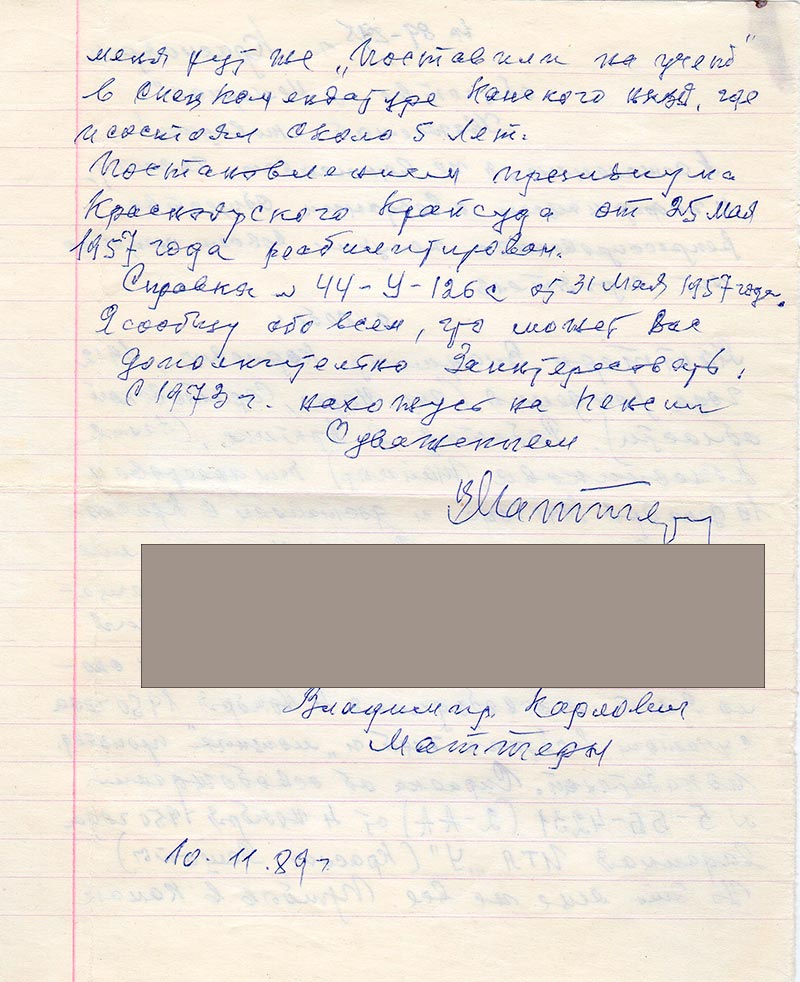 меня тут же „Поставили на учет"
в Спецкомендатуре Канского НКВД, где
и состоял около 5 Лет.
Постановлением президиума
Красноярского Крайсуда от 25 Мая
1957 года реабилитирован.
Справка № 44-У-126с от 31 Мая 1957 года.
Я сообщу обо всем, что может Вас
дополнительно Заинтересовать.
С 1973 г. нахожусь на Пенсии
С уважением
ВМаттерн
Владимир Карлович
Маттерн
10.11.89 г.